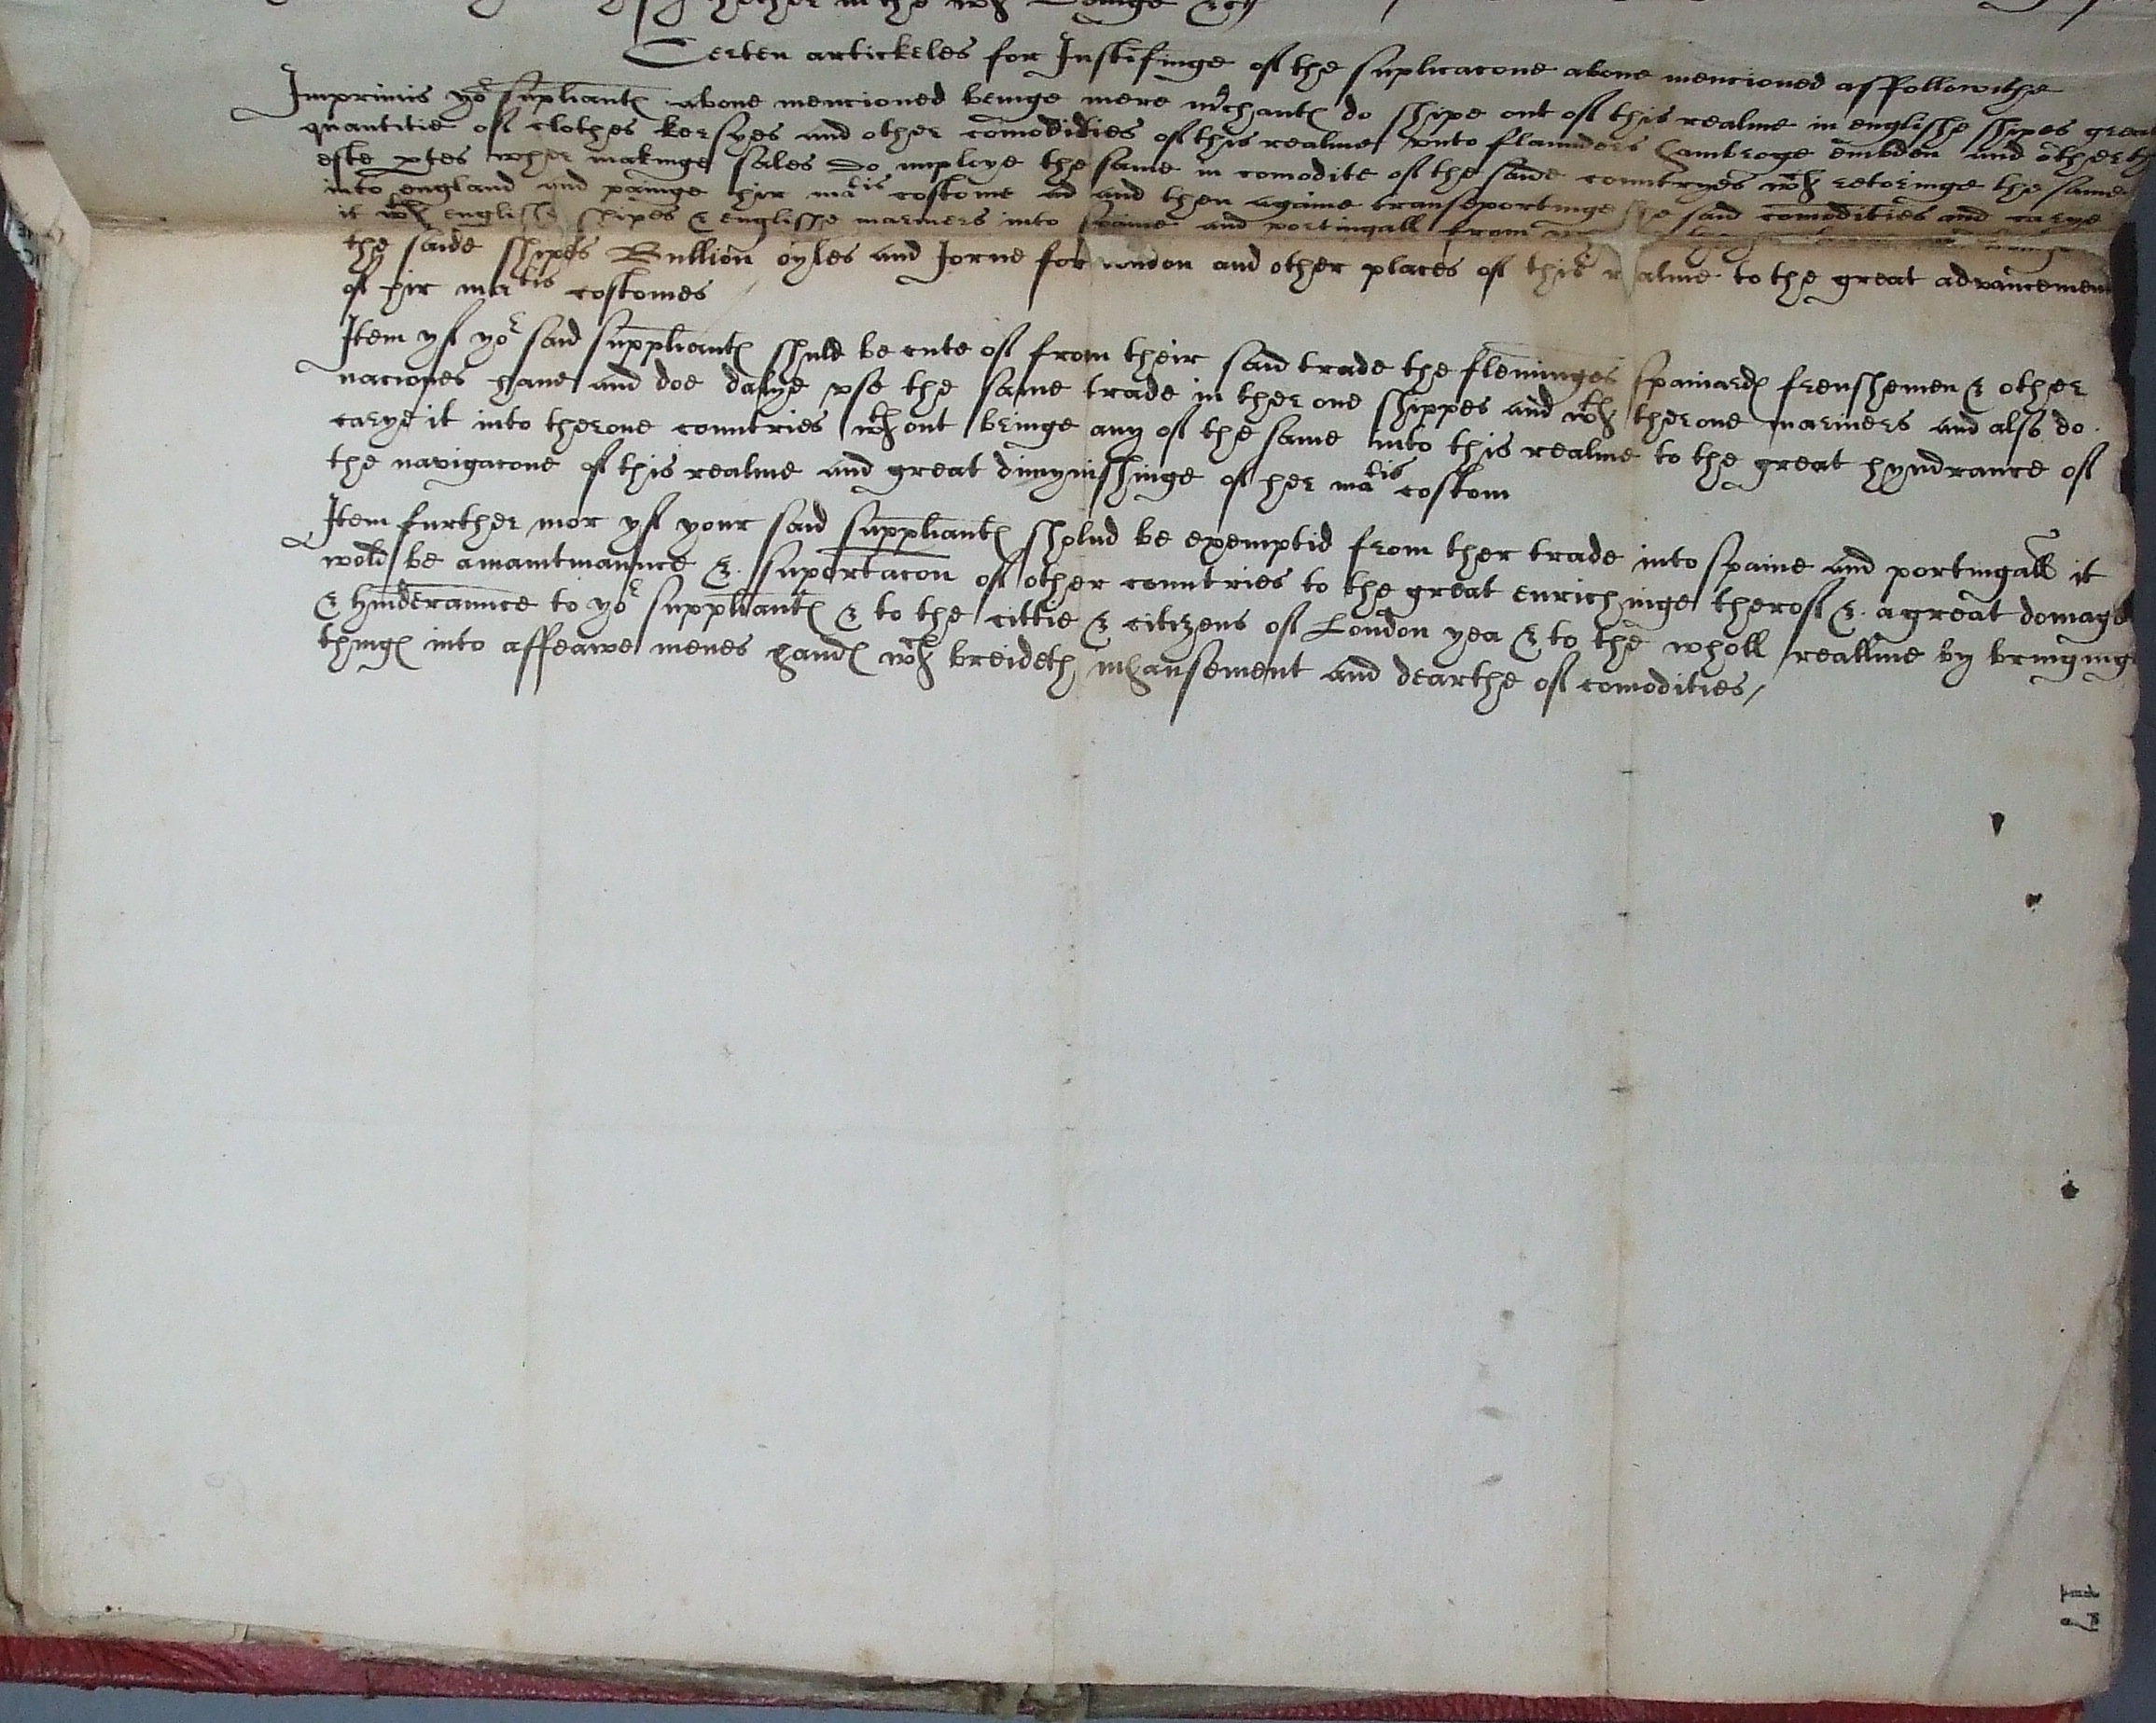 hether in the wch beinge &c
Certen artickeles for Justifinge of the suplicacone above mencioned as ffollowithe
Imprimis yor supliantes above mencioned beinge mere mrchantes do shipe out of this realme in englishe shipes great
quantitie of clothes kersyes and other comodidies of this realme unto flaunders hambroge embden and other
este ptes wher makinge sales do imploye the same in comodite of the saide countryes wch retoringe the same
into england and painge hir matis costome ad and then againe transeportinge the said comodities and carye
it wth englishe shipes & englisshe mariners into spaine and portingall from
the saide shipes Bullion oyles and Iorne for london and other places of this realme to the great advancement
of hir matis costomes
Item yf yor said suppliantes shuld be cute of from their said trade the fleminges spaniardes frenshemen & other
naciones have and doe dalye use the same trade in ther one shippes and wth ther one mariners and also do
carye it into ther one countries wthout bringe any of the same into this realme to the great hyndrance of
the navigacone of this realme and great dimynishinge of her matis costom
Item further mor yf your said suppliantes sholud be exemptid from ther trade into spaine and portingall it
wold be a maintinaunce & suportacon of other countries to the great enrichinge therof & a great domage
& hinderaunce to yor suppliantes & to the cittie & citizens of London yea & to the wholl reallme by bringing
thinges into affeawe menes handes wch breideth inhansement and dearthe of comodities /
17